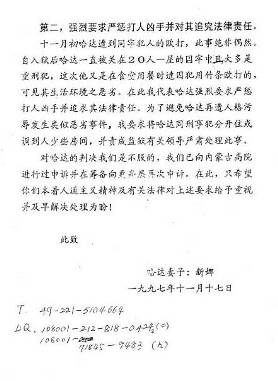 第二，强烈要求严惩打人凶手并对其追究法律责任。
十一月初哈达遭到同牢犯人的欧打，此事绝非偶然。
自入狱后哈达一直被关在20人一屋的囚牢中且大多是
重刑犯，这次他又是在食堂用餐时遭囚犯用竹条欧打的，
可见其生活环境之恶劣。在此我代哈达强烈要求严惩
打人的凶手并追究其法律责任。为了避免哈达再遭人格污
辱发生类似恶害事件，我们要求将哈达同刑事犯分开住或
调到人少些房间，并责成监狱有关领导严肃处理此事。
对哈达的判决我们是不服的，我们已向内蒙古高院
进行过申诉并在筹备向更高层再次申诉。在此，只希望
你们本着人道主义精神及有关法律对上述要求给予重视
并及早解决处理为盼！
此致
哈达妻子：新娜
一九九七年十一月十七日
T. 49-221-5104664
LQ. 108001-212-818-0424½(0)
108001-
71845-9483 (h)